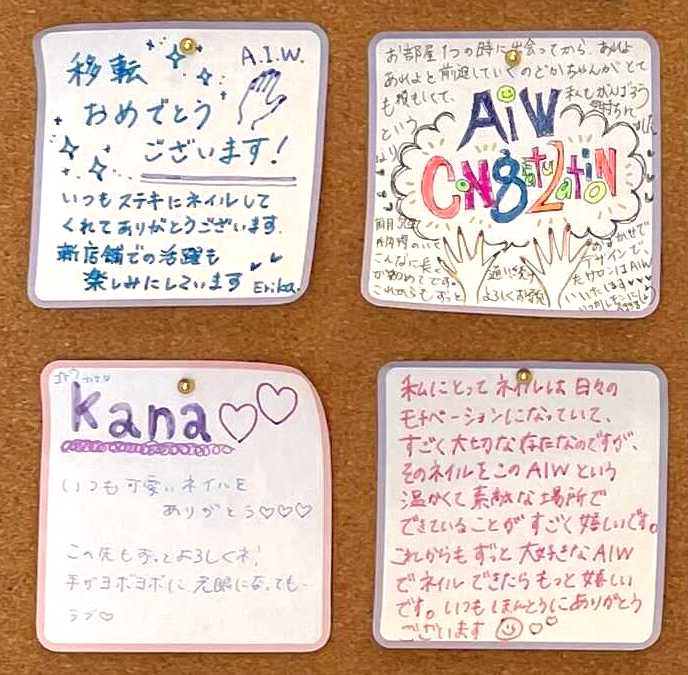 移転
A.I.W.
おめでとう
ございます!
いつもステキにネイルして
くれてありがとうございます.
新店舗での活躍も
楽しみにしています
Erika.
お部屋1つの時に出会ってから、あれよ
あれよと前進していくのどかちゃんがとて
も頼もしくて、
私もがんばろう
という
AiW
CONgratulation
こんなに長く
が初めてです。
これからもずっと
通い続
よろしくお願
おまかせで
デザインで
たサロンはAIW
いいたします
kana
いつも可愛いネイルを
ありがとう♡♡♡
この先もずっとよろしくネ!
手がヨボヨボに 老眼になっても
ラブ♡
私にとって ネイルは 日々の
モチベーションになっていて、
すごく大切な存在なのですが、
そのネイルをこのAIWという
温かくて素敵な場所で
できていることがすごく嬉しいです。
これからもずっと大好きなAIW
でネイルできたらもっと嬉しい
です。いつもほんとうにありがとう
ございます